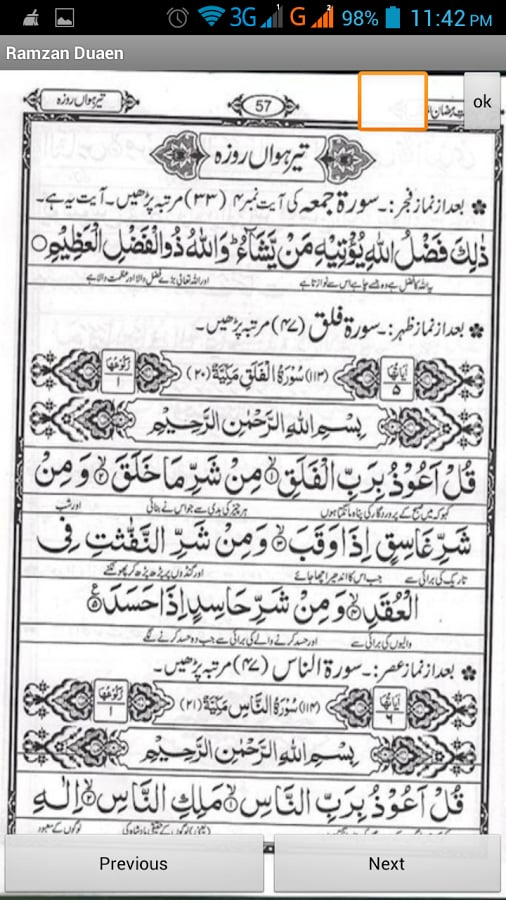 3G G 98% 11:42 PM
Ramzan Duaen
تیرھواں روزہ
57
ok
تیرھواں روزہ
بعد از نماز فجر:۔ سورۃ جمعہ کی آیت نمبر ۴ (۳۳) مرتبہ پڑھیں۔ آیت یہ ہے۔
ذٰلِكَ فَضْلُ اللّٰهِ يُؤْتِيْهِ مَنْ يَّشَآءُ ؕ وَاللّٰهُ ذُو الْفَضْلِ الْعَظِيْمِ ○
یہ اللہ کا فضل ہے وہ جسے چاہے اس سے نوازتا ہے اور اللہ تعالیٰ بڑے فضل والا اور عظمت والا ہے
بعد از نماز ظہر:۔ سورۃ فلق (۴۷) مرتبہ پڑھیں۔
اٰيَاتُهَا ۵ (۱۱۳) سُوْرَةُ الْفَلَقِ مَكِّيَّةٌ (۲۰) رُكُوْعُهَا ۱
بِسْمِ اللّٰهِ الرَّحْمٰنِ الرَّحِيْمِ
قُلْ اَعُوْذُ بِرَبِّ الْفَلَقِ ۙ۱ مِنْ شَرِّ مَا خَلَقَ ۙ۲ وَ مِنْ
کہو کہ میں صبح کے پروردگار کی پناہ مانگتا ہوں ہر چیز کی بدی سے جو اس نے بنائی اور شب
شَرِّ غَاسِقٍ اِذَا وَقَبَ ۙ۳ وَ مِنْ شَرِّ النَّفّٰثٰتِ فِى
تاریک کی برائی سے جب اس کا اندھیرا چھا جائے اور گنڈوں پر پڑھ پڑھ کر پھونکنے
الْعُقَدِ ۙ۴ وَ مِنْ شَرِّ حَاسِدٍ اِذَا حَسَدَ ۵
والیوں کی برائی سے اور حسد کرنے والے کی برائی سے جب وہ حسد کرنے لگے
بعد از نماز عصر:۔ سورۃ الناس (۴۷) مرتبہ پڑھیں۔
اٰيَاتُهَا ۶ (۱۱۴) سُوْرَةُ النَّاسِ مَكِّيَّةٌ (۲۱) رُكُوْعُهَا ۱
بِسْمِ اللّٰهِ الرَّحْمٰنِ الرَّحِيْمِ
قُلْ اَعُوْذُ بِرَبِّ النَّاسِ ۙ۱ مَلِكِ النَّاسِ ۙ۲ اِلٰهِ
لوگوں کے معبود
Previous
Next